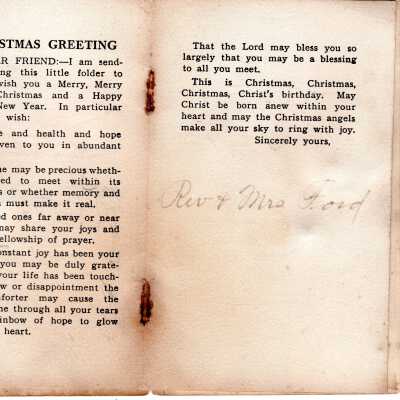 STMAS GREETING
R FRIEND:—I am send-
ng this little folder to
wish you a Merry, Merry
Christmas and a Happy
New Year. In particular
wish:
e and health and hope
ven to you in abundant
e may be precious wheth-
ed to meet within its
s or whether memory and
must make it real.
ed ones far away or near
may share your joys and
ellowship of prayer.
onstant joy has been your
you may be duly grate-
your life has been touch-
w or disappointment the
mforter may cause the
ne through all your tears
inbow of hope to glow
heart.
That the Lord may bless you so
largely that you may be a blessing
to all you meet.
This is Christmas, Christmas,
Christmas, Christ's birthday. May
Christ be born anew within your
heart and may the Christmas angels
make all your sky to ring with joy.
Sincerely yours,
Rev & Mrs Ford